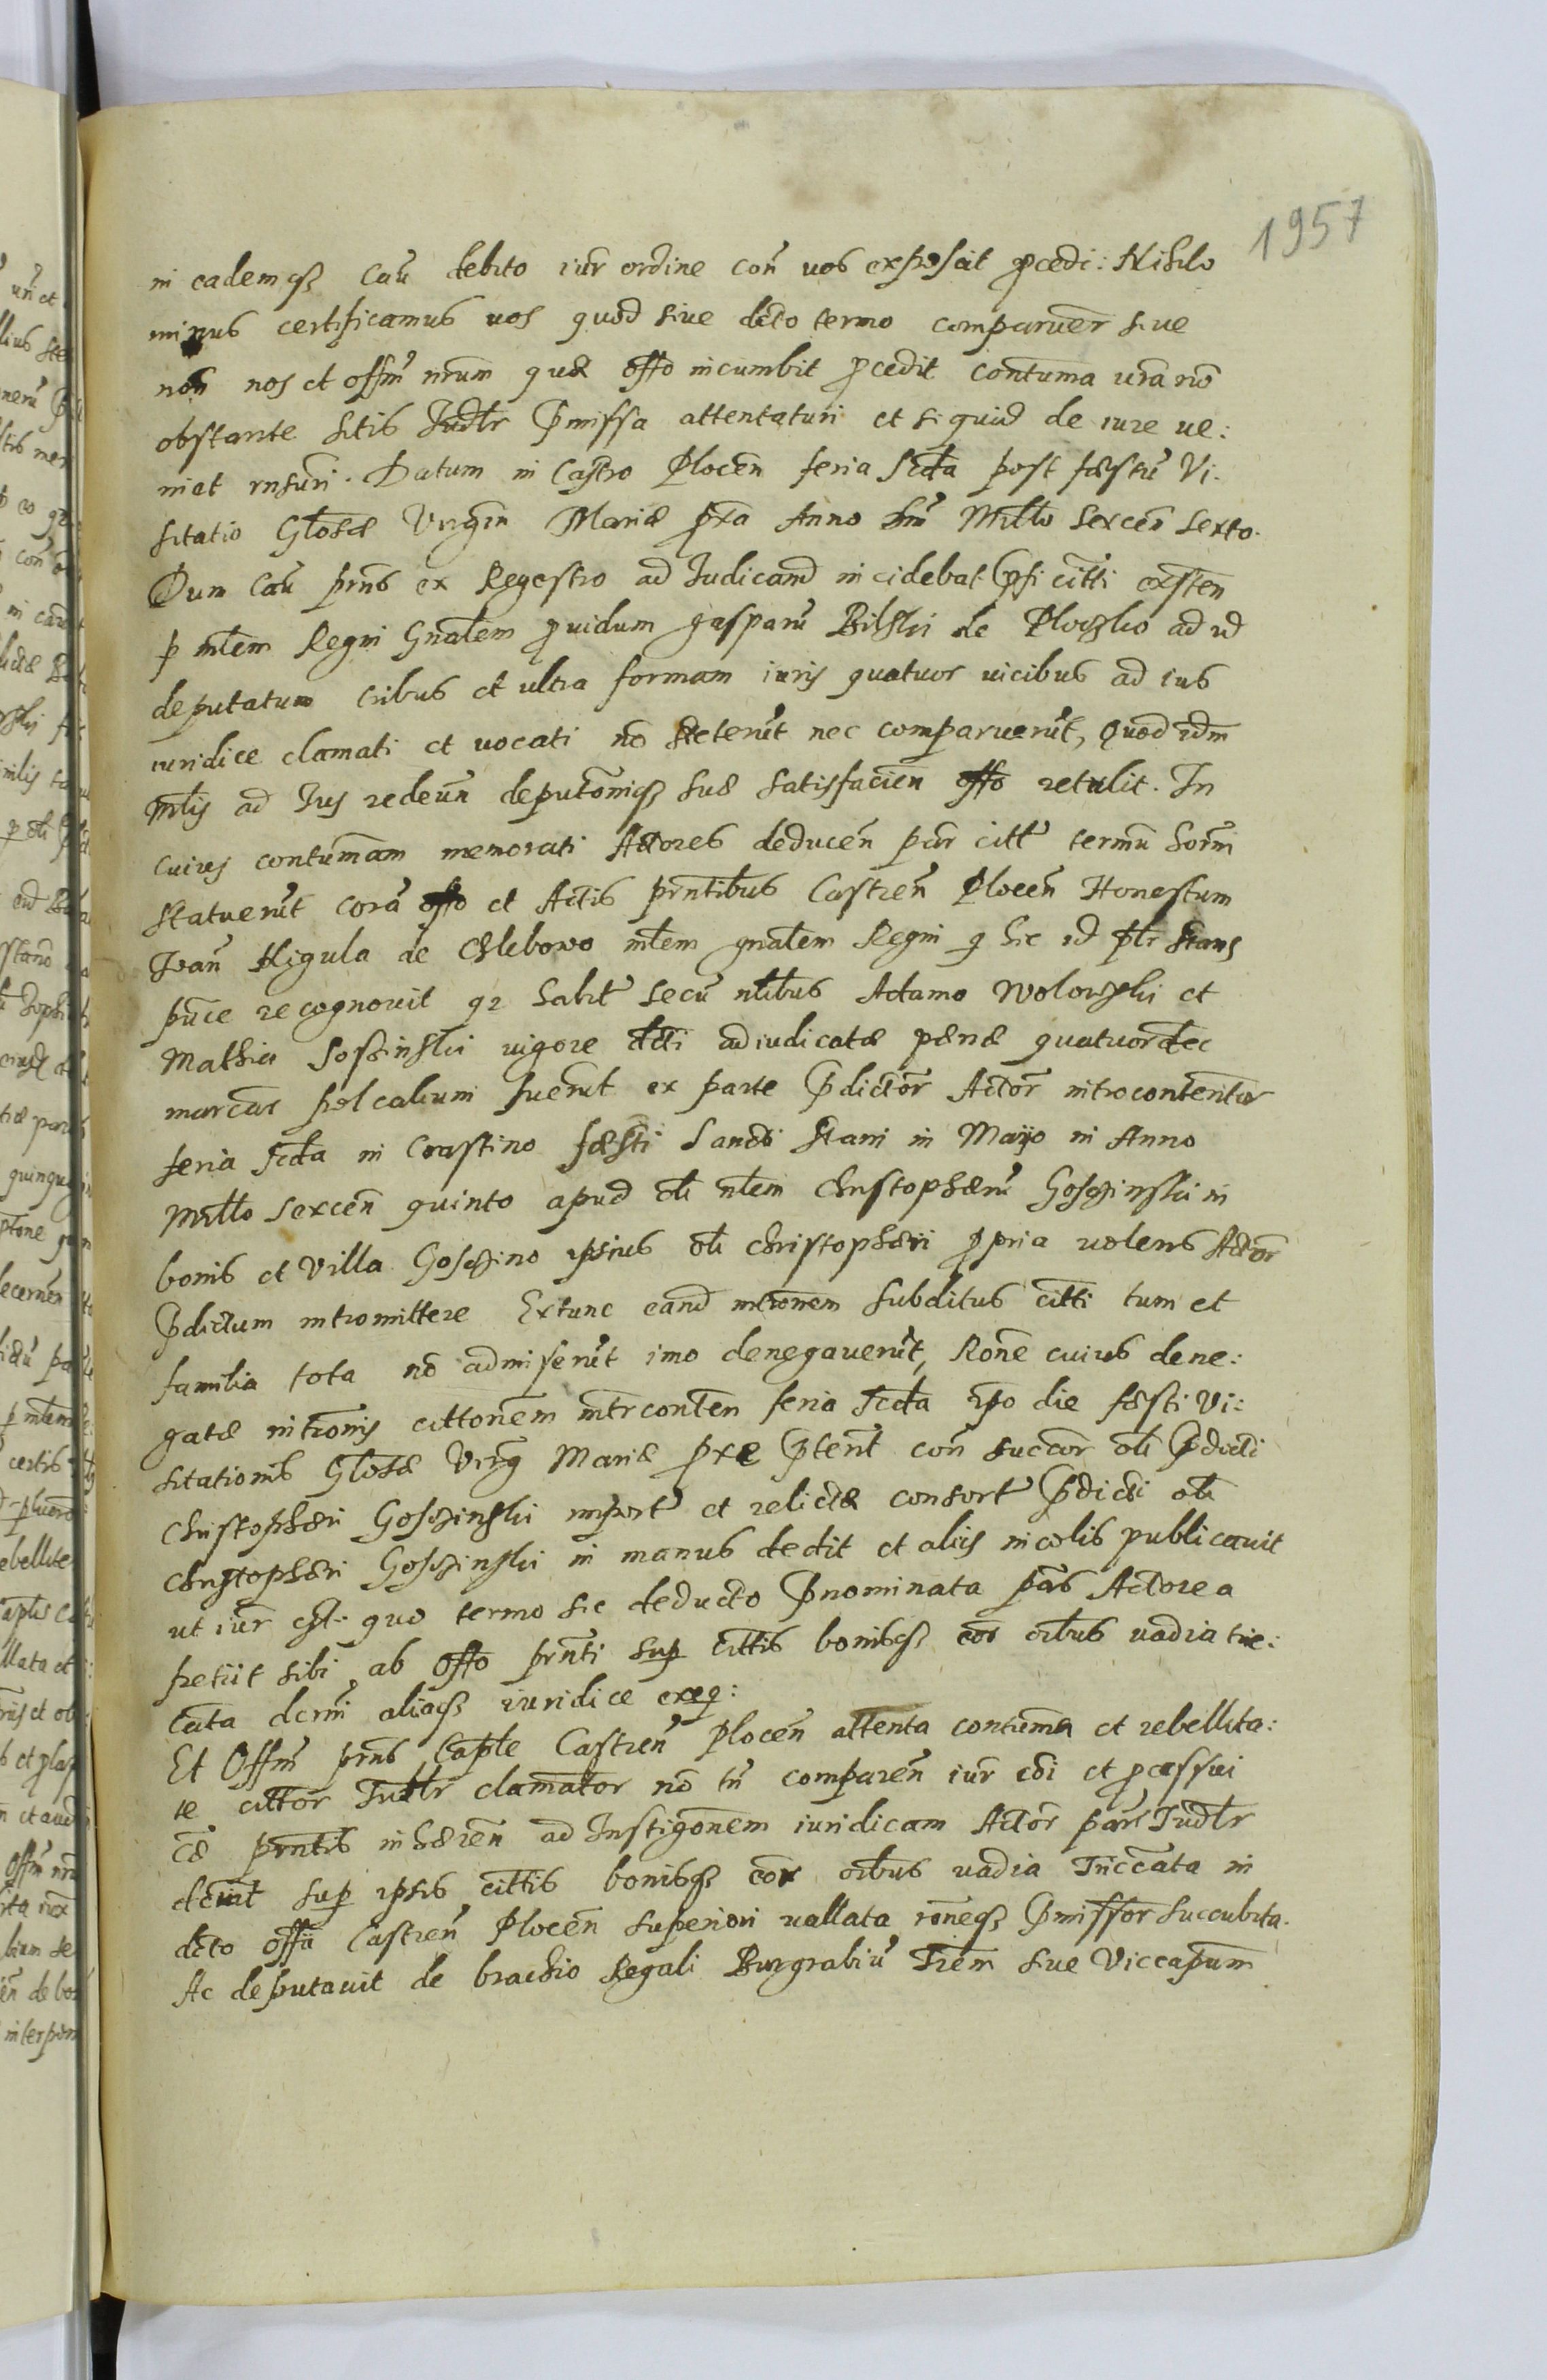 1957
in eademq₃ Cāū debito iur̄ ordine Con̄ vos exposcit p̱cedi: Nihilo
minus certificamus vos quod siue d̄cto termo comparuer̄ siue
non nos et offm̄ nr̄um quæ offo incumbit p̱cedit contuma vr̄a nō
obstante sitis Iudlr p̄missa attentaturi et si quid de iure ue:
niat rn̄suri. Datum in Castro Plocen̄ feria s̄cda post fæstū Vi-
sitatio Gl̄osæ Virgin̄ Mariæ p̱xa Anno Dn̄i Mill̄o Sexcen̄ Sexto.
Dum Cāū prn̄s ex Regestro ad Iudicand̄ incidebat p̄fi cītti exsten̄
p̱ mlēm Regni Gnālem p̱uidum gasparū Bilski de Ploczko ad id
deputatum tribus et ultra formam iuris quatuor vicibus ad ius
iuridice clamati et uocati nō steterūt nec comparuerūt, Quod idm̄
mlis ad Ius redeun̄ deputōniq₃ suæ satisfacien̄ offo retulit. In
cuius contumām memorati Actores deducen̄ par̄ citt̄ termn̄ hor̄ni
statuerūt corā offo et Actis prn̄tibus Castren̄ Plocen̄ Honestum
Ioān̄ Higula de Chlebowo mlēm gnālem Regni q hic id pl̄r stans
pūce recognouit qz habit̄ secū nl̄ibus Adamo Wolowski et
Mathia Soszinski vigore d̄cti adiudicatæ pænæ quatuordec
marcar̄ pel calium fuerūt ex parte p̄dictor̄ Actor̄ introcontentar̄
feria s̄cda in Crastino fæsti Sancti Stani in Mayo in Anno
Mill̄o Sexcen̄ quinto apud ol̄i nl̄em Christophærū Goszinski in
bonis et Villa Goszino ipsius ol̄i Christophæri p̱pria uolens Actōr
p̄dictum intromittere Extunc eand̄ intrōnem subditus citti tum et
familia tota nō admiserūt imo denegauerūt, Rōne cuius dene:
gatæ intrōnis cittōnem intrconten̄ feria s̄cda ipo die fæsti Vi:
sitationis Gl̄osæ Virḡ Mariæ p̱xe p̄terit̄ con̄ succōr ol̄i p̄dicti
Christophæri Goszinski import̄ et relictæ consort̄ p̄dicti ol̄i
Christophæri Goszinski in manus dedit et aliis incolis publicauit
ut iur̄ est: quo termo sic deducto p̄nominata par̄s Actorea
petiit sibi ab offo prn̄ti sup̱ cittis bonisq₃ eor oībus uadia trie:
cūta decrni aliaq₃ iuridice exeq:
Et Offm̄ prn̄s Capl̄e Castren̄ Plocen̄ attenta contuma et rebellita:
te citōr Iudlr clamatōr nō tn̄ comparen̄ iur̄ cōi et p̱cessui
cæ prn̄tis inhæren̄ ad Instigōnem iuridicam Actor̄ par̄s Iudlr
decreuit sup̱ ipsis cittis bonisq₃ eōr oībus uadia Triccata in
d̄cto offii Castren̄ Plocen̄ superiori uallata rōneq₃ p̄missōr succubita.
Ac deputauit de brachio Regali Burgrabiū Trēm siue Viccapum